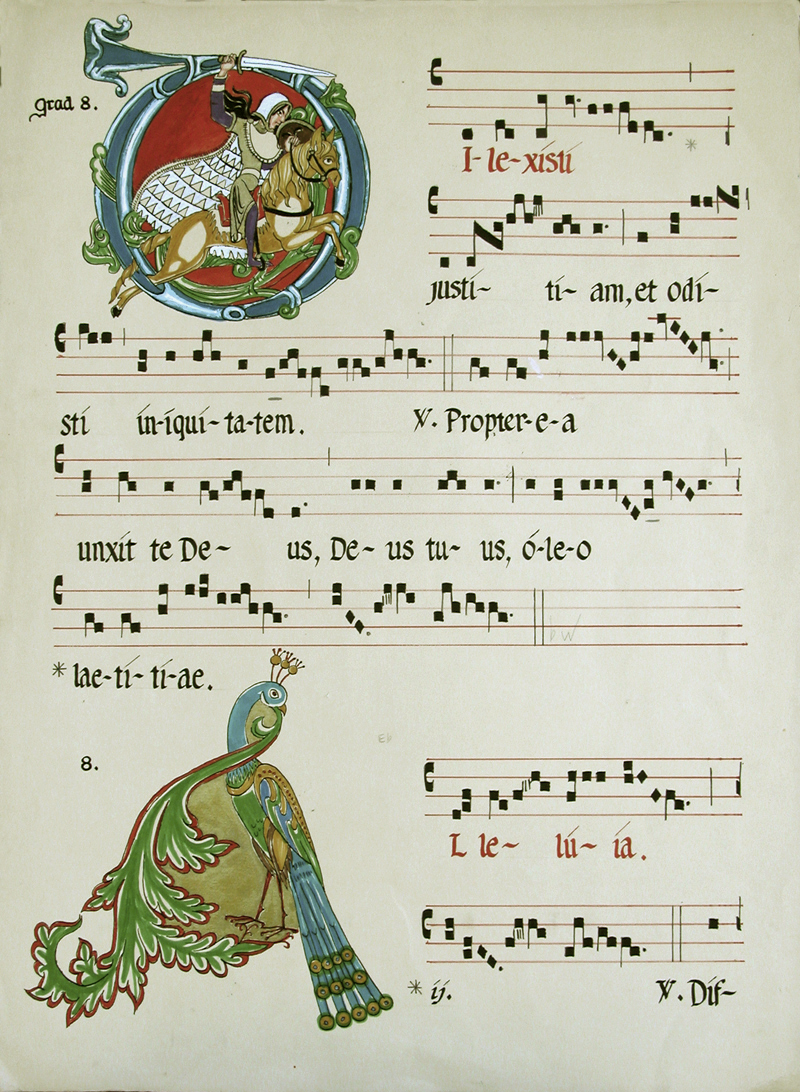 grad 8.
I-le-xisti
justi- ti- am, et odi-
sti in-iqui-ta-tem. V. Propter-e-a
unxit te De- us, De- us tu- us, ó-le-o
* lae-ti-ti-ae.
8.
L le- lú- ia.
* ij. V. Dif-